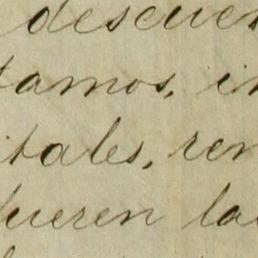 descuen
tamos, in
itales, ren
dueren la